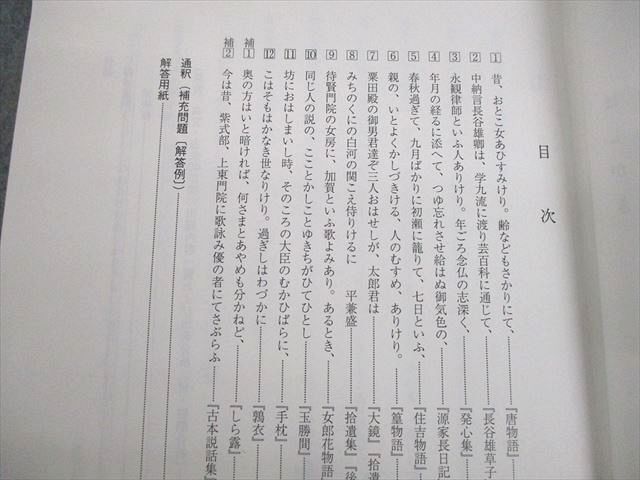 目次
1 昔、おとこ女あひすみけり。齢などもさかりにて、……『唐物語』
2 中納言長谷雄卿は、学九流に渡り芸百科に通じて、……『長谷雄草子
3 永観律師といふ人ありけり。年ごろ念仏の志深く、……『発心集』
4 年月の経るに添へて、つゆ忘れさせ給はぬ御気色の、……『源家長日記
5 春秋過ぎて、九月ばかりに初瀬に籠りて、七日といふ、……『住吉物語』
6 親の、いとよくかしづきける、人のむすめ、ありけり。……『篁物語』
7 粟田殿の御男君達ぞ三人おはせしが、太郎君は……『大鏡』『拾遺
8 みちのくにの白河の関こえ侍りけるに 平兼盛……『拾遺集』『後
9 待賢門院の女房に、加賀といふ歌よみあり。あるとき、……『女郎花物語
10 同じ人の説の、こことかしことゆきちがひてひとし……『玉勝間』
11 坊におはしまいし時、そのころの大臣のむかひばらに、……『手枕』
12 こはそもはかなき世なりけり。過ぎしはわづかに……『鶉衣』
補1 奥の方はいと暗ければ、何さまとあやめも分かねど、……『しら露』
補2 今は昔、紫式部、上東門院に歌詠み優の者にてさぶらふ……『古本説話集』
通釈(補充問題〔解答例〕)……
解答用紙……